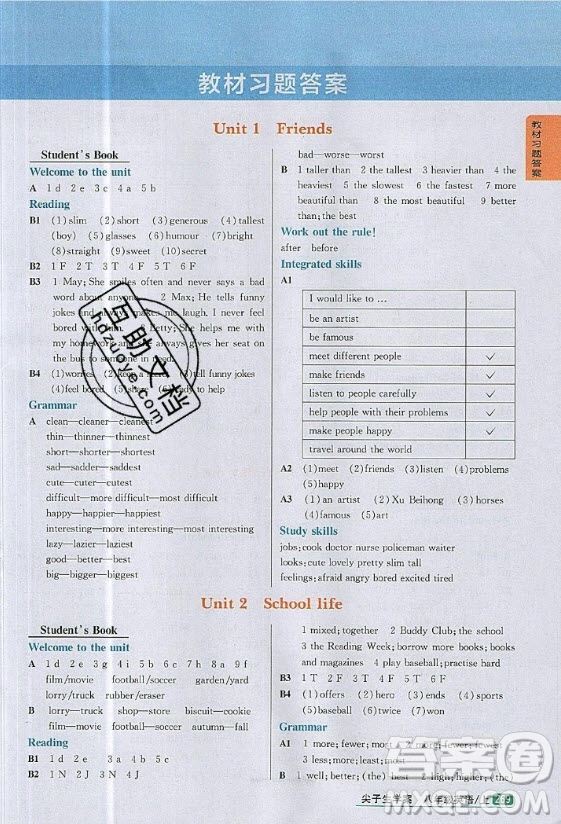 教材习题答案
教材习题答案
Unit 1 Friends
Student's Book
Welcome to the unit
A 1 d 2 e 3 c 4 a 5 b
Reading
B1 (1)slim (2)short (3)generous (4)tallest
(boy) (5)glasses (6)humour (7)bright
(8)straight (9)sweet (10)secret
B2 1 F 2 T 3 T 4 F 5 T 6 F
B3 1 May; She smiles often and never says a bad
word about anyone. 2 Max; He tells funny
jokes and always makes me laugh. I never
bored with him. Betty; She helps me with
my homework and always gives her seat on
the bus to someone in need.
B4 (1)worries (2)keep (3)tell funny jokes
(4)feel bored (5)slim (6)ready to help
Grammar
A clean—cleaner—cleanest
thin—thinner—thinnest
short—shorter—shortest
sad—sadder—saddest
cute—cuter—cutest
difficult—more difficult—most difficult
happy—happier—happiest
interesting—more interesting—most interesting
lazy—lazier—laziest
good—better—best
big—bigger—biggest
bad—worse—worst
B 1 taller than 2 taller than 3 heavier than 4 the
heaviest 5 the slowest 6 the fastest 7 more
beautiful than 8 the most beautiful 9 better
than; the best
Work out the rule!
after before
Integrated skills
A1
I would like to ...
be an artist
be famous
meet different people ✓
make friends ✓
listen to people carefully ✓
help people with their problems ✓
make people happy ✓
travel around the world
A2 (1)meet (2)friends (3)listen (4)problems
(5)happy
A3 (1)an artist (2)Xu Beihong (3)horses
(4)famous (5)art
Study skills
jobs: cook doctor nurse policeman waiter
looks: cute lovely pretty slim tall
feelings: afraid angry bored excited tired
Unit 2 School life
Student's Book
Welcome to the unit
A 1 d 2 e 3 g 4 i 5 b 6 c 7 h 8 a 9 f
film/movie football/soccer garden/yard
lorry/truck rubber/eraser
B lorry—truck shop—store biscuit—cookie
film—movie football—soccer autumn—fall
Reading
B1 1 d 2 e 3 f 4 c 5 a 6 b
B2 1 N 2 J 3 N 4 J
1 mixed; together 2 Buddy Club; the school
3 the Reading Week; borrow more books; books
and magazines 4 play baseball; practise hard
B3 1 T 2 F 3 T 4 F 5 T 6 F
B4 (1)offers (2)hero (3)ends (4)sports
(5)baseball (6)twice (7)won
Grammar
A1 1 more; fewer; most 2 more; fewer; fewest
3 less; more; least; most
B 1 well; better; (the) best 2 high; higher; (the)
尖子生学案 八年级英语/上
互助文档
hdzuoye.com
作业帮手